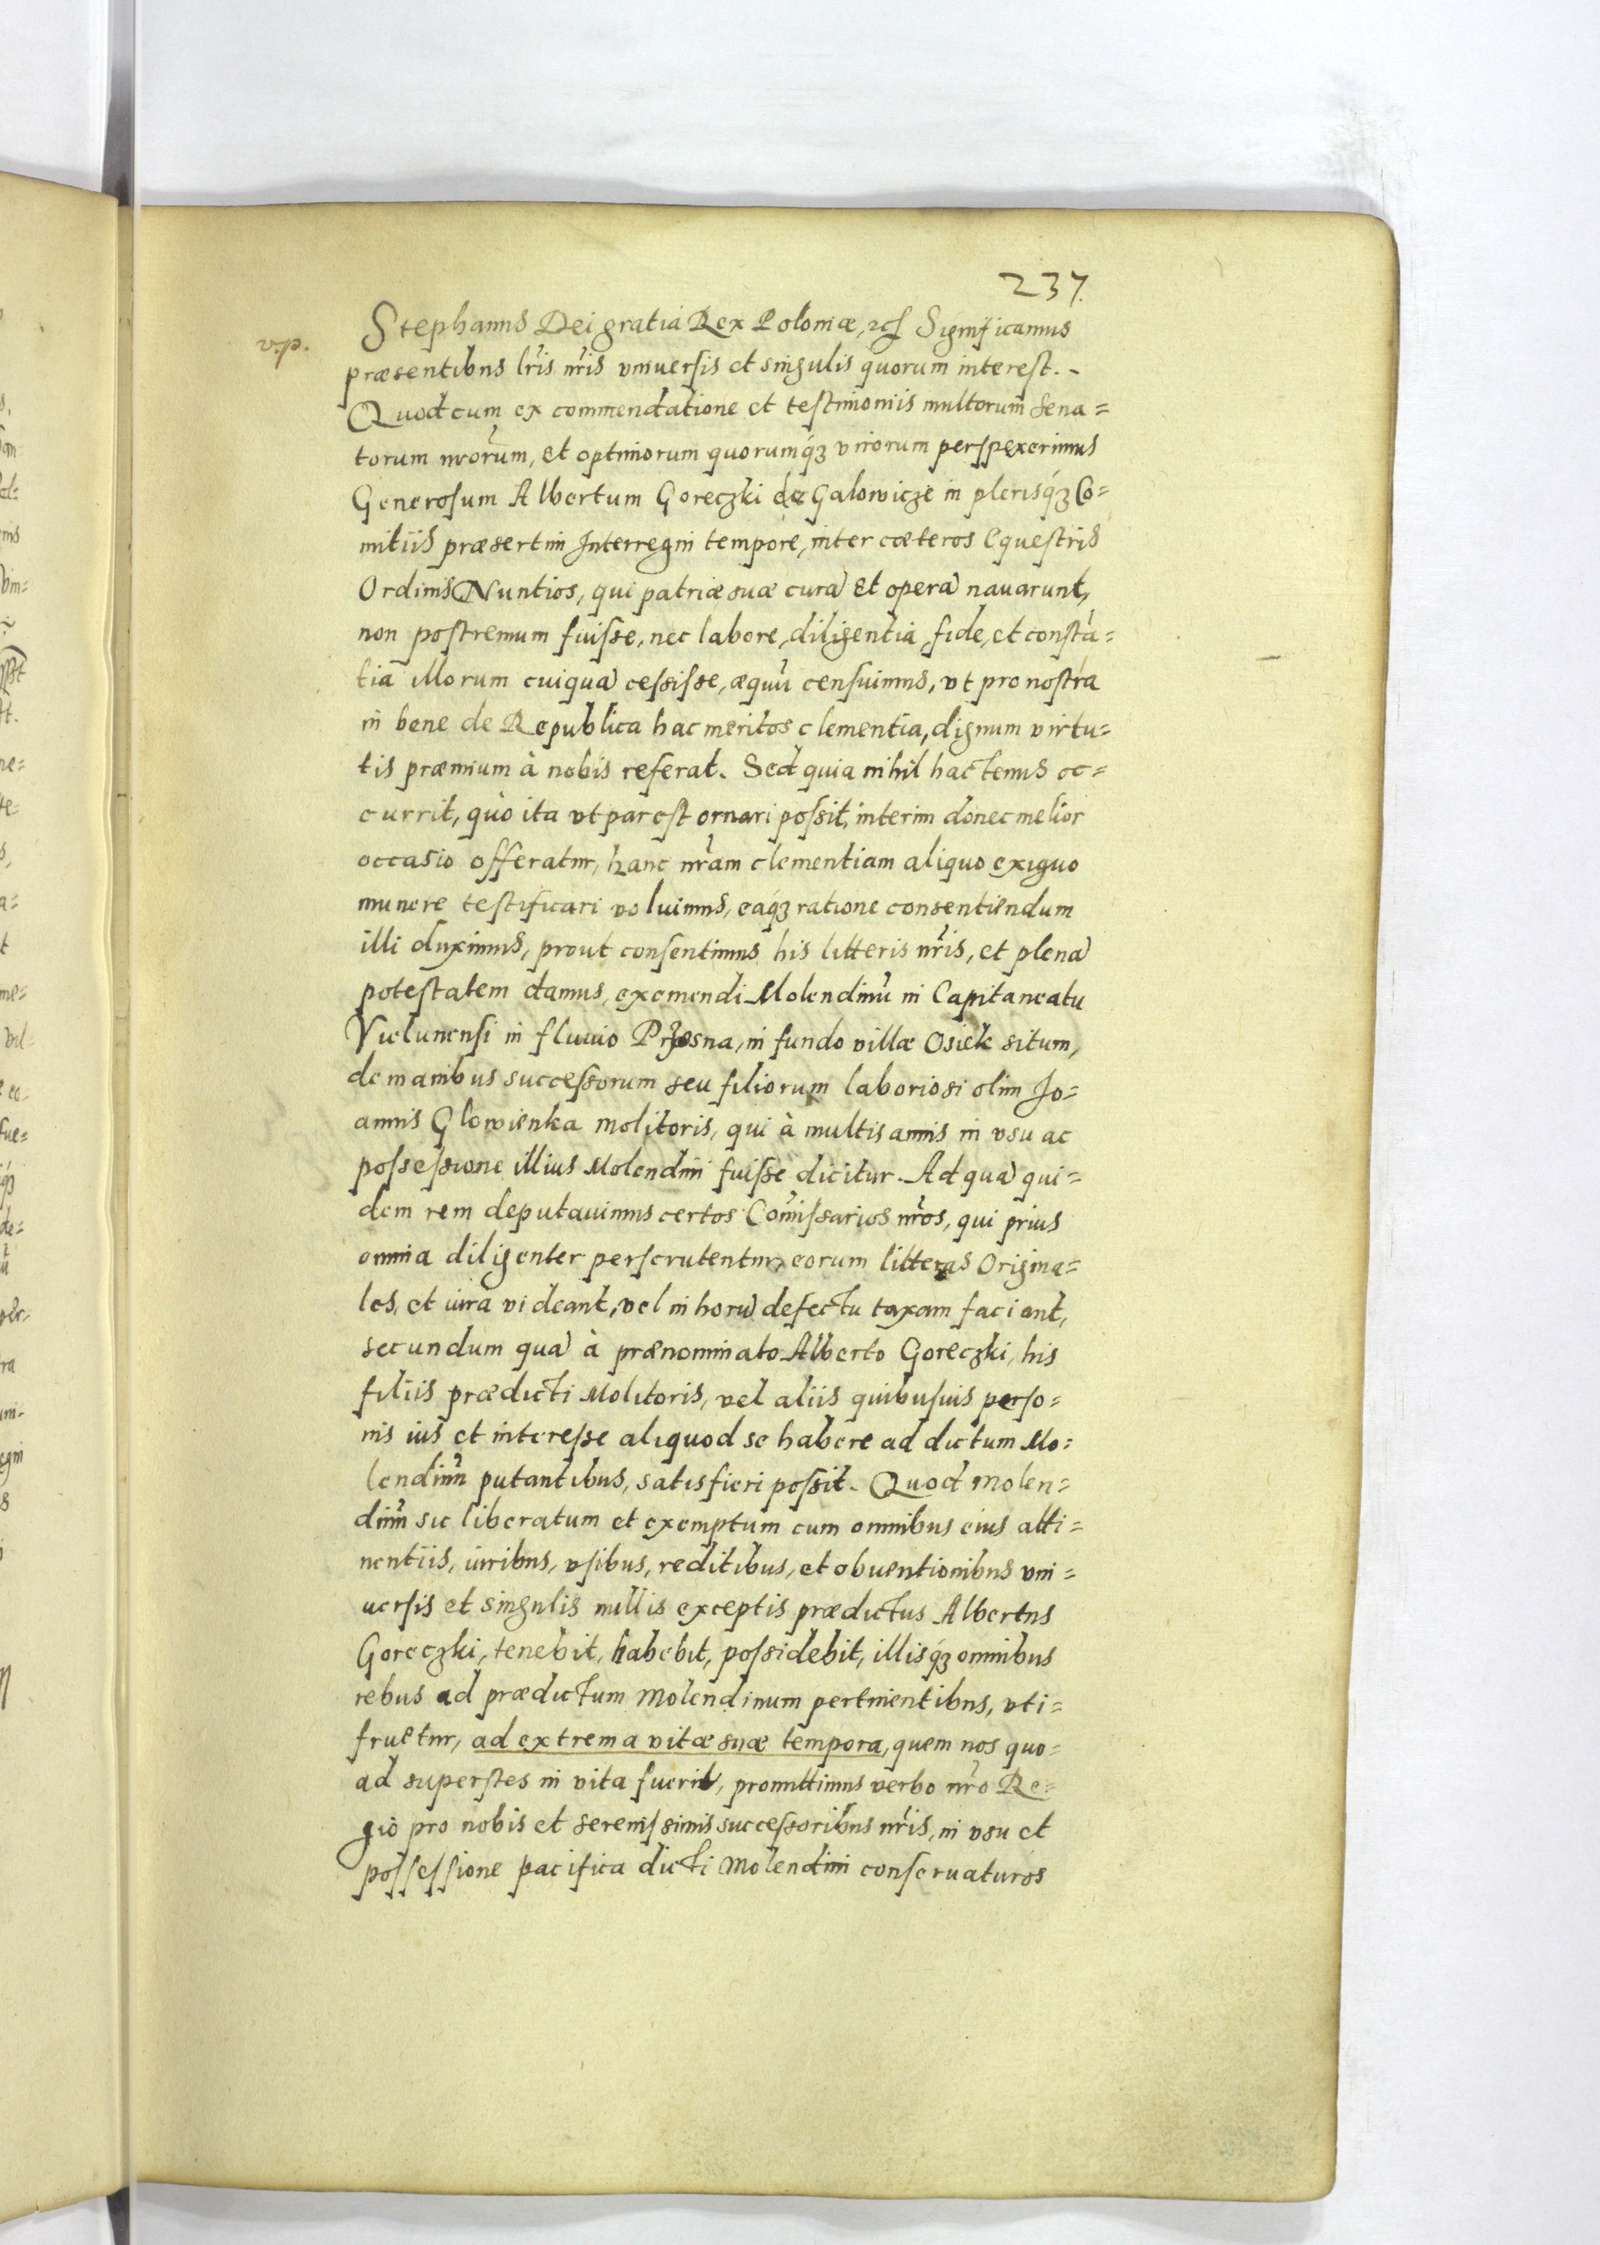 237.
v.p.
Stephanus Dei gratia Rex Poloniæ, etc Significamus
præsentibus lr̃is nr̃is vniuersis et singulis quorum interest. -
Quod cum ex commendatione et testimoniis multorum Sena=
torum nr̃orum, et optimorum quorumq́ꝫ virorum perspexerimus
Generosum Albertum Goreczki de Galowicze in plerisq́ꝫ Co=
mitiis præsertim Interregni tempore, inter cæteros Equestris
Ordinis Nuntios, qui patriæ suæ curã et operã nauarunt,
non postremum fuisse, nec labore, diligentia, fide, et constã=
tia illorum cuiquã cessisse, æquũ censuimus, vt pro nostra
in bene de Republica hac meritos clementia, dignum virtu=
tis præmium à nobis referat. Sed quia nihil hactenus oc=
currit, quò ita vt par est ornari possit, interim donec melior
occasio offeratur, hanc nr̃am clementiam aliquo exiguo
munere testificari voluimus, eaq́ꝫ ratione consentiendum
illi duximus, prout consentimus his litteris nr̃is, et plenã
potestatem damus, exemendi Molendinũ in Capitaneatu
Vielunensi in fluuio Przosna, in fundo villæ Osiek situm,
de manibus successorum seu filiorum laboriosi olim Jo=
annis Glowienka molitoris, qui à multis annis in vsu ac
possessione illius Molendini fuisse dicitur. Ad quã qui=
dem rem deputauimus certos Com̃issarios nr̃os, qui prius
omnia diligenter perscrutentur, eorum litteras Origina=
les, et iura videant, vel in horũ defectu taxam faciant,
secundum quã à prænominato Alberto Goreczki, his
filiis prædicti Molitoris, vel aliis quibusuis perso=
nis ius et interesse aliquod se habere ad dictum Mo=
lendinũ putantibus, satisfieri possit. Quod Molen=
dinũ sic liberatum et exemptum cum omnibus eius atti=
nentiis, iuribus, vsibus, reditibus, et obuentionibus vni=
uersis et singulis nullis exceptis prædictus Albertus
Goreczki, tenebit, habebit, possidebit, illisq́ꝫ omnibus
rebus ad prædictum Molendinum pertinentibus, vti=
fruetur, ad extrema vitæ suæ tempora, quem nos quo=
ad superstes in vita fuerit, promittimus verbo nr̃o Re=
gio pro nobis et serenissimis successoribus nr̃is, in vsu et
possessione pacifica dicti Molendini conseruaturos